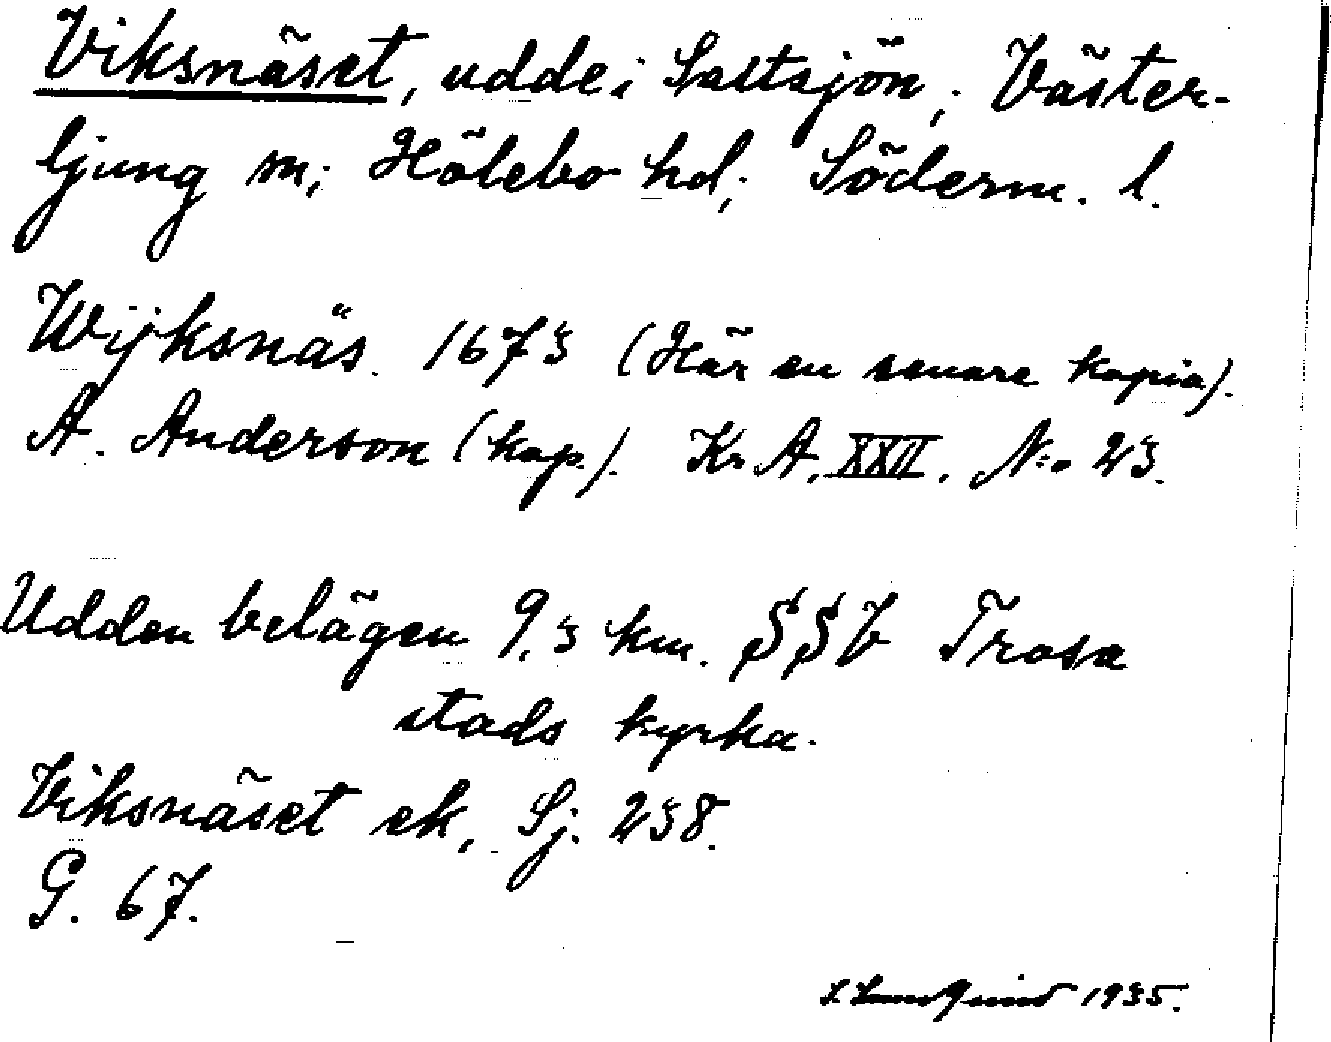 Viksnäset, udde i Saltsjön; Väster-
ljung sn; Hölebo hd; Söderm. l.
Wijksnäs. 1673 (Här en senare kopia).
A. Anderson (kop.). Kr A. XXII. N:o 23.
Udden belägen 9,3 km. SSV Trosa
stads kyrka.
Viksnäset ek, Sj. 238.
G. 67.
1935.